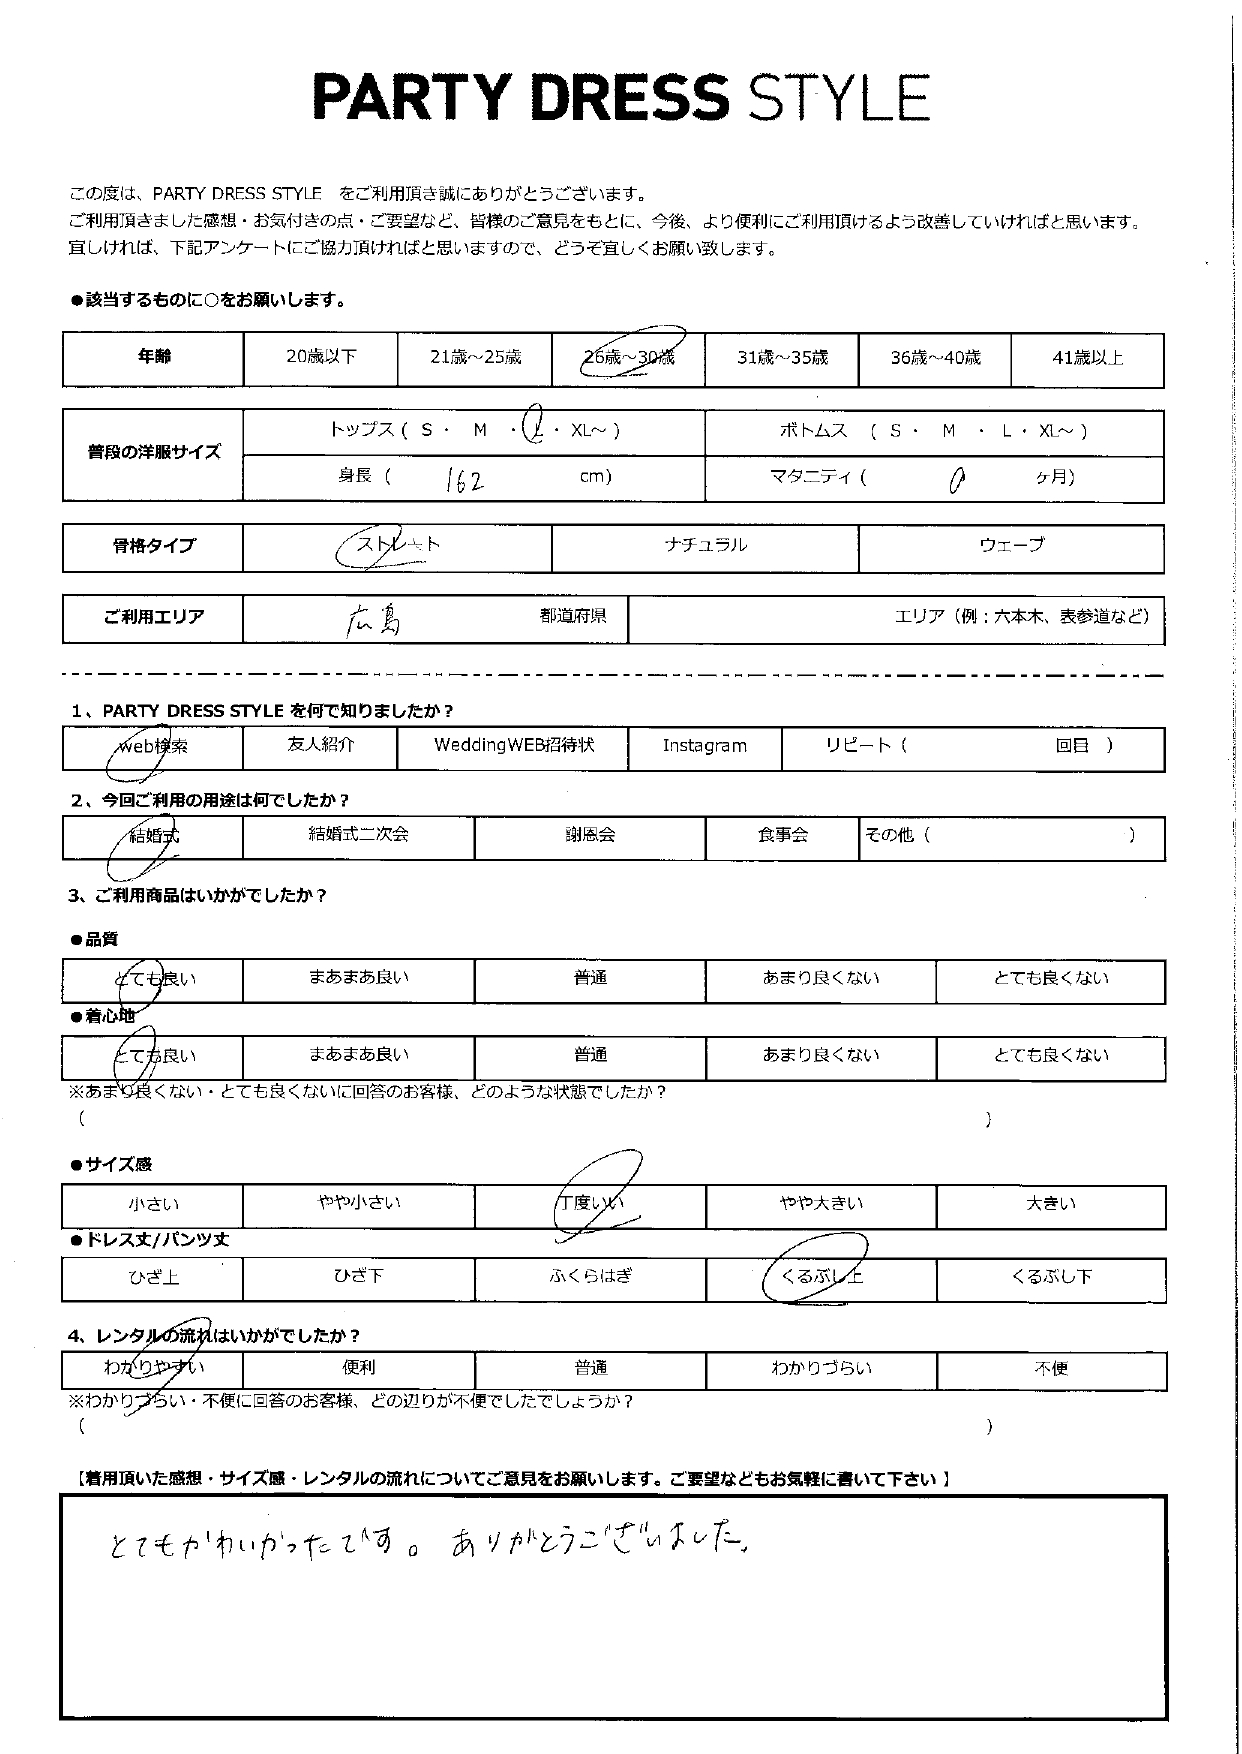 PARTY DRESS STYLE
この度は、PARTY DRESS STYLE　をご利用頂き誠にありがとうございます。
ご利用頂きました感想・お気付きの点・ご要望など、皆様のご意見をもとに、今後、より便利にご利用頂けるよう改善していければと思います。
宜しければ、下記アンケートにご協力頂ければと思いますので、どうぞ宜しくお願い致します。
●該当するものに○をお願いします。
年齢 20歳以下 21歳～25歳 26歳～30歳 31歳～35歳 36歳～40歳 41歳以上
普段の洋服サイズ
トップス ( S ・ M ・ L ・ XL～ ) ボトムス ( S ・ M ・ L ・ XL～ )
身長 ( 162 cm) マタニティ ( 0 ヶ月)
骨格タイプ ストレート ナチュラル ウェーブ
ご利用エリア 広島 都道府県 エリア（例：六本木、表参道など）
1、PARTY DRESS STYLE を何で知りましたか？
Web検索 友人紹介 WeddingWEB招待状 Instagram リピート ( 回目 )
2、今回ご利用の用途は何でしたか？
結婚式 結婚式二次会 謝恩会 食事会 その他 ( )
3、ご利用商品はいかがでしたか？
●品質
とても良い まあまあ良い 普通 あまり良くない とても良くない
●着心地
とても良い まあまあ良い 普通 あまり良くない とても良くない
※あまり良くない・とても良くないに回答のお客様、どのような状態でしたか？
( )
●サイズ感
小さい やや小さい 丁度いい やや大きい 大きい
●ドレス丈/パンツ丈
ひざ上 ひざ下 ふくらはぎ くるぶし上 くるぶし下
4、レンタルの流れはいかがでしたか？
わかりやすい 便利 普通 わかりづらい 不便
※わかりづらい・不便に回答のお客様、どの辺りが不便でしたでしょうか？
( )
【着用頂いた感想・サイズ感・レンタルの流れについてご意見をお願いします。ご要望などもお気軽に書いて下さい】
とてもかわいかったです。ありがとうございました。